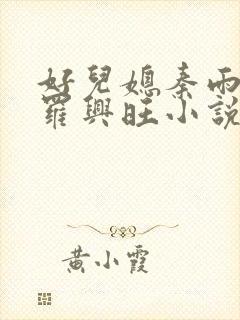 好兒媳秦雨
羅興旺小說
黃小霞